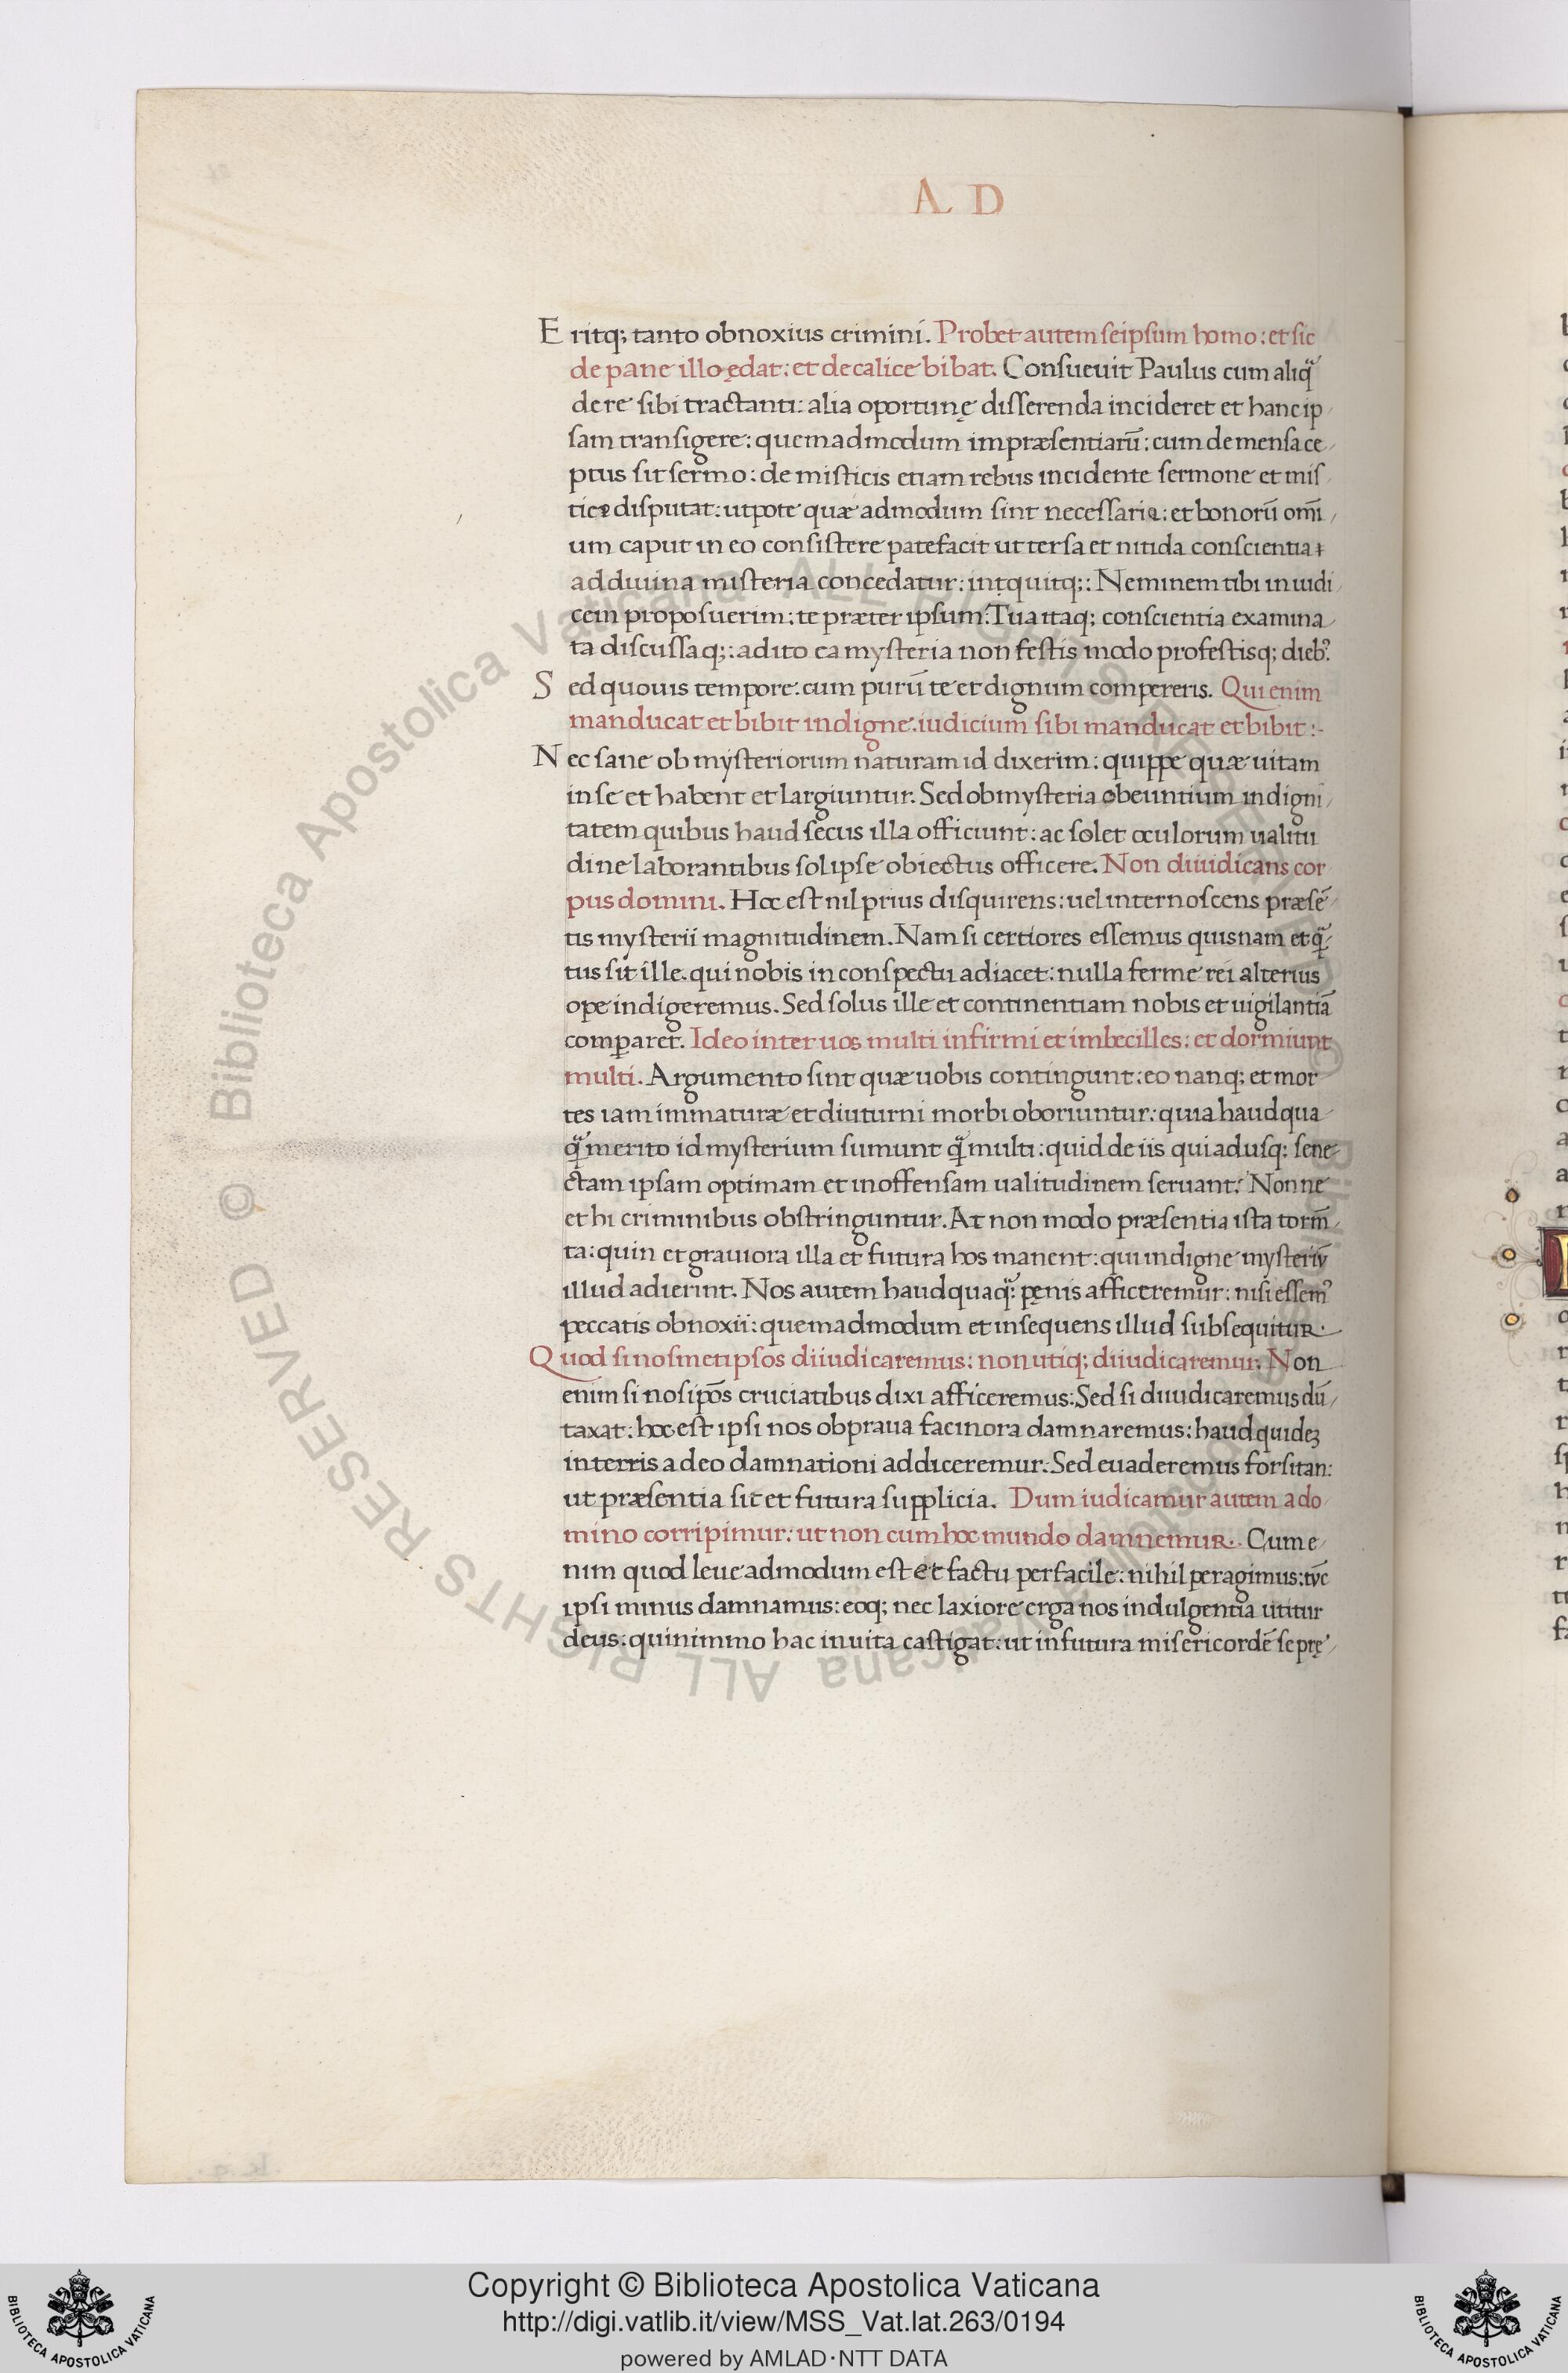 A D
Eritq; tanto obnoxius crimini. Probet autem seipsum homo: et sic
de pane illo ędat: et de calice bibat. Consueuit Paulus cum aliq̃
de re sibi tractanti: alia oportunę disserenda incideret et hanc ip
sam transigere: quemadmodum impræsentiarũ: cum de mensa ce
ptus sit sermo: de misticis etiam rebus incidente sermone et mis
tice disputat: utpote quæ admodum sint necessaria: et bonorũ omĩ
um caput in eo consistere patefacit ut tersa et nitida conscientia
ad diuina misteria concedatur: inquitq;: Neminem tibi in iudi
cem proposuerim: te præter ipsum: Tua itaq; conscientia examina
ta discussaq;: adito ea mysteria non festis modo profestisq; dieb⁹.
Sed quouis tempore: cum purũ te et dignum compereris. Qui enim
manducat et bibit indigne: iudicium sibi manducat et bibit :-
Nec sane ob mysteriorum naturam id dixerim: quippe quæ uitam
in se et habent et largiuntur. Sed ob mysteria obeuntium indigni
tatem quibus haud secus illa officiunt: ac solet oculorum ualitu
dine laborantibus sol ipse obiectus officere. Non diiudicans cor
pus domini. Hoc est nil prius disquirens: uel internoscens præsẽ
tis mysterii magnitudinem. Nam si certiores essemus quisnam et q̃
tus sit ille: qui nobis in conspectu adiacet: nulla ferme rei alterius
ope indigeremus. Sed solus ille et continentiam nobis et uigilantiã
compararet. Ideo inter uos multi infirmi et imbecilles: et dormiunt
multi. Argumento sint quæ uobis contingunt: eo nanq; et mor
tes iam immaturæ et diuturni morbi oboriuntur: quia haud qua
q̃ merito id mysterium sumunt q̃ multi: quid de iis qui adusq; sene
ctam ipsam optimam et inoffensam ualitudinem seruant: Nonne
et hi criminibus obstringuntur. At non modo præsentia ista torm̃
ta: quin et grauiora illa et futura hos manent: qui indigne mysteriũ
illud adierint. Nos autem haud quaq̃: pęnis afficeremur: nisi essem⁹
peccatis obnoxii: quemadmodum et insequens illud subsequitur.
Quod si nosmetipsos diiudicaremus: non utiq; diiudicaremur. Non
enim si nos ip̃os cruciatibus dixi afficeremus: Sed si diiudicaremus dũ
taxat: hoc est ipsi nos ob praua facinora damnaremus: haud quideȝ
in terris a deo damnationi addiceremur: Sed euaderemus forsitan:
ut præsentia sic et futura supplicia. Dum iudicamur autem a do
mino corripimur: ut non cum hoc mundo damnemur. Cum e
nim quod leue admodum est et factu perfacile: nihil peragimus: tũc
ipsi minus damnamus: eoq; nec laxiore erga nos indulgentia utitur
deus: quinimmo hac in uita castigat: ut in futura misericordẽ se prę
© Biblioteca Apostolica Vaticana ALL RIGHTS RESERVED
Copyright © Biblioteca Apostolica Vaticana
http://digi.vatlib.it/view/MSS_Vat.lat.263/0194
powered by AMLAD·NTT DATA
BIBLIOTECA APOSTOLICA VATICANA
BIBLIOTECA APOSTOLICA VATICANA